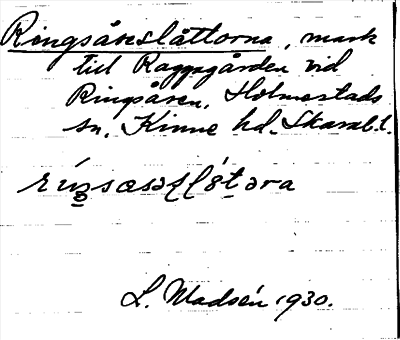 Ringsåseslåttorna, mark
till Raggagården vid
Ringsåsen, Holmestads
sn, Kinne hd. Skarab. l.
L. Madsén 1930.